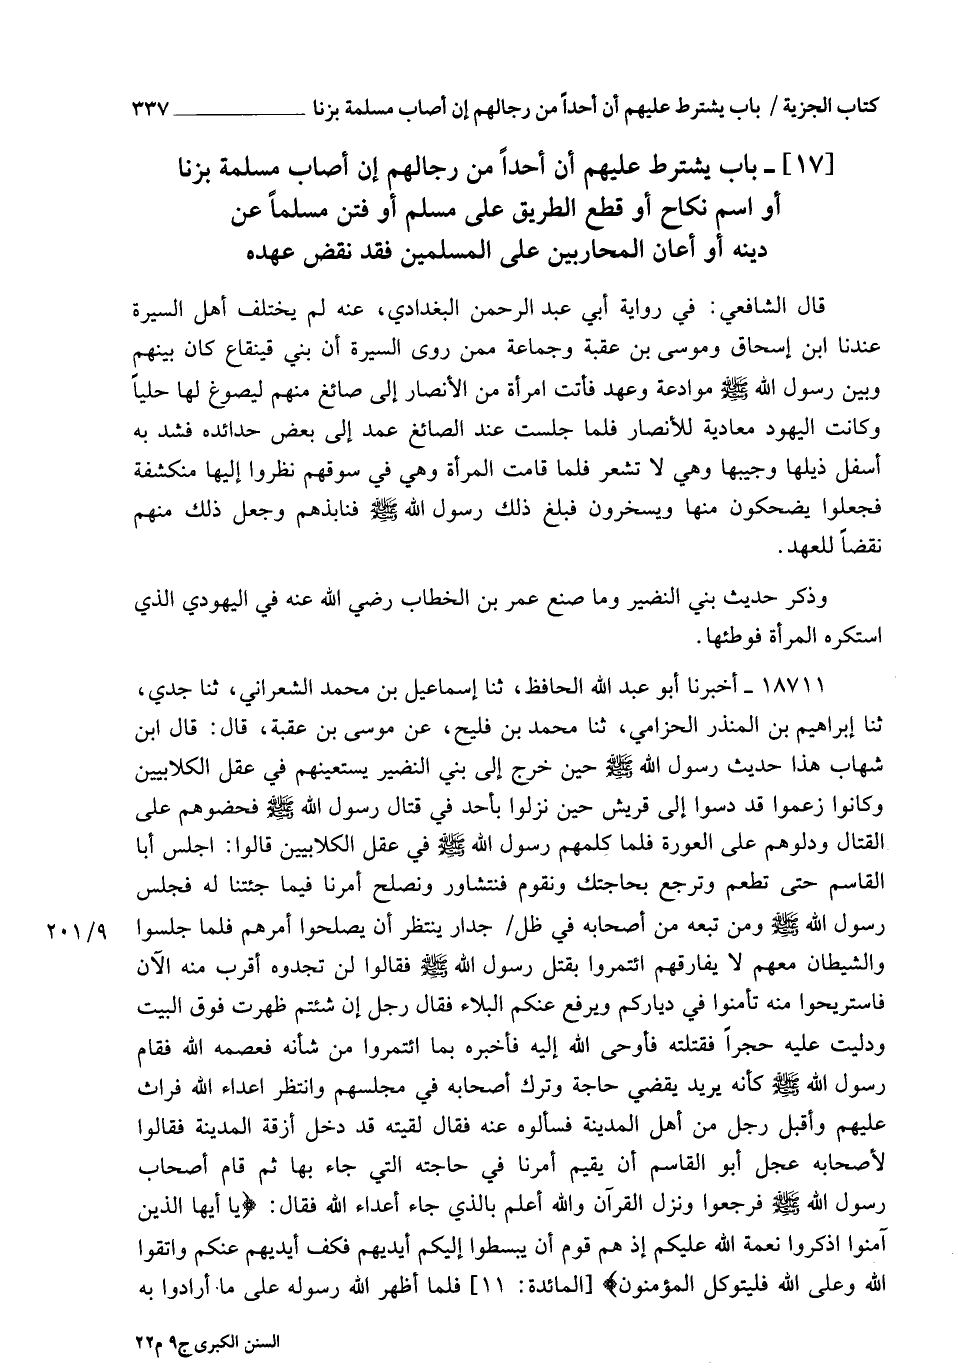 كتاب الجزية / باب يشترط عليهم أن أحداً من رجالهم إن أصاب مسلمة بزنا ـــــــــــ ٣٣٧
[١٧] ـ باب يشترط عليهم أن أحداً من رجالهم إن أصاب مسلمة بزنا
أو اسم نكاح أو قطع الطريق على مسلم أو فتن مسلماً عن
دينه أو أعان المحاربين على المسلمين فقد نقض عهده
قال الشافعي: في رواية أبي عبد الرحمن البغدادي، عنه لم يختلف أهل السيرة
عندنا ابن إسحاق وموسى بن عقبة وجماعة ممن روى السيرة أن بني قينقاع كان بينهم
وبين رسول الله ﷺ موادعة وعهد فأتت امرأة من الأنصار إلى صائغ منهم ليصوغ لها حلياً
وكانت اليهود معادية للأنصار فلما جلست عند الصائغ عمد إلى بعض حدائده فشد به
أسفل ذيلها وجيبها وهي لا تشعر فلما قامت المرأة وهي في سوقهم نظروا إليها منكشفة
فجعلوا يضحكون منها ويسخرون فبلغ ذلك رسول الله ﷺ فنابذهم وجعل ذلك منهم
نقضاً للعهد.
وذكر حديث بني النضير وما صنع عمر بن الخطاب رضي الله عنه في اليهودي الذي
استكره المرأة فوطئها.
١٨٧١١ ـ أخبرنا أبو عبد الله الحافظ، ثنا إسماعيل بن محمد الشعراني، ثنا جدي،
ثنا إبراهيم بن المنذر الحزامي، ثنا محمد بن فليح، عن موسى بن عقبة، قال: قال ابن
شهاب هذا حديث رسول الله ﷺ حين خرج إلى بني النضير يستعينهم في عقل الكلابيين
وكانوا زعموا قد دسوا إلى قريش حين نزلوا بأحد في قتال رسول الله ﷺ فحضوهم على
القتال ودلوهم على العورة فلما كلمهم رسول الله ﷺ في عقل الكلابيين قالوا: اجلس أبا
القاسم حتى تطعم وترجع بحاجتك ونقوم فنتشاور ونصلح أمرنا فيما جئتنا له فجلس
رسول الله ﷺ ومن تبعه من أصحابه في ظل/ جدار ينتظر أن يصلحوا أمرهم فلما جلسوا ٢٠١/٩
والشيطان معهم لا يفارقهم ائتمروا بقتل رسول الله ﷺ فقالوا لن تجدوه أقرب منه الآن
فاستريحوا منه تأمنوا في دياركم ويرفع عنكم البلاء فقال رجل إن شئتم ظهرت فوق البيت
ودليت عليه حجراً فقتلته فأوحى الله إليه فأخبره بما ائتمروا من شأنه فعصمه الله فقام
رسول الله ﷺ كأنه يريد يقضي حاجة وترك أصحابه في مجلسهم وانتظر اعداء الله فراث
عليهم وأقبل رجل من أهل المدينة فسألوه عنه فقال لقيته قد دخل أزقة المدينة فقالوا
لأصحابه عجل أبو القاسم أن يقيم أمرنا في حاجته التي جاء بها ثم قام أصحاب
رسول الله ﷺ فرجعوا ونزل القرآن والله أعلم بالذي جاء أعداء الله فقال: ﴿يا أيها الذين
آمنوا اذكروا نعمة الله عليكم إذ هم قوم أن يبسطوا إليكم أيديهم فكف أيديهم عنكم واتقوا
الله وعلى الله فليتوكل المؤمنون﴾ [المائدة: ١١] فلما أظهر الله رسوله على ما أرادوا به
السنن الكبرى ج٩ م٢٢